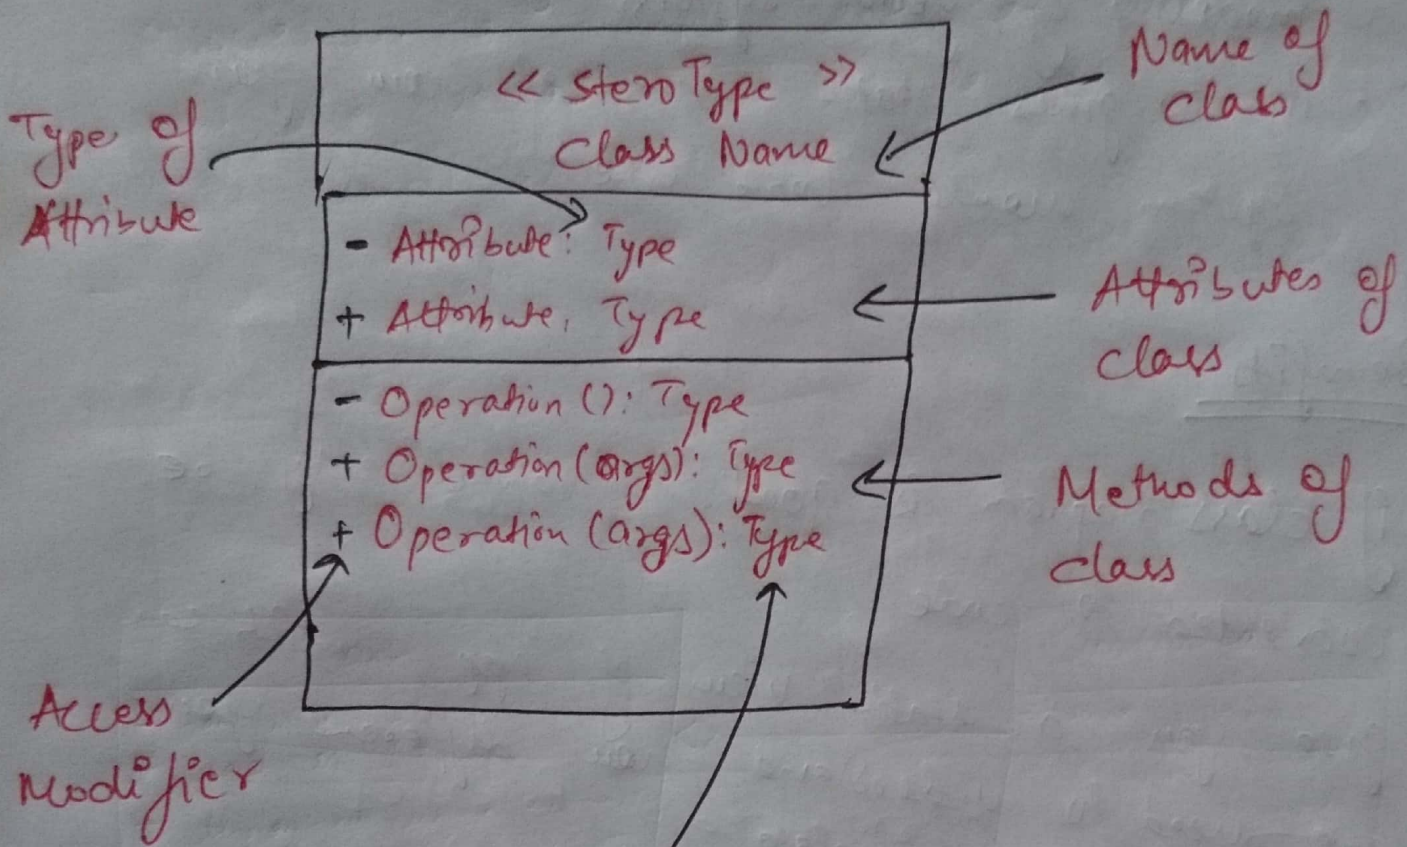 << SteroType >>
Class Name
Name of
Class
Type of
Attribute
- Attribute: Type
+ Attribute, Type
Attributes of
class
- Operation (): Type
+ Operation (args): Type
+ Operation (args): Type
Methods of
class
Access
Modifier